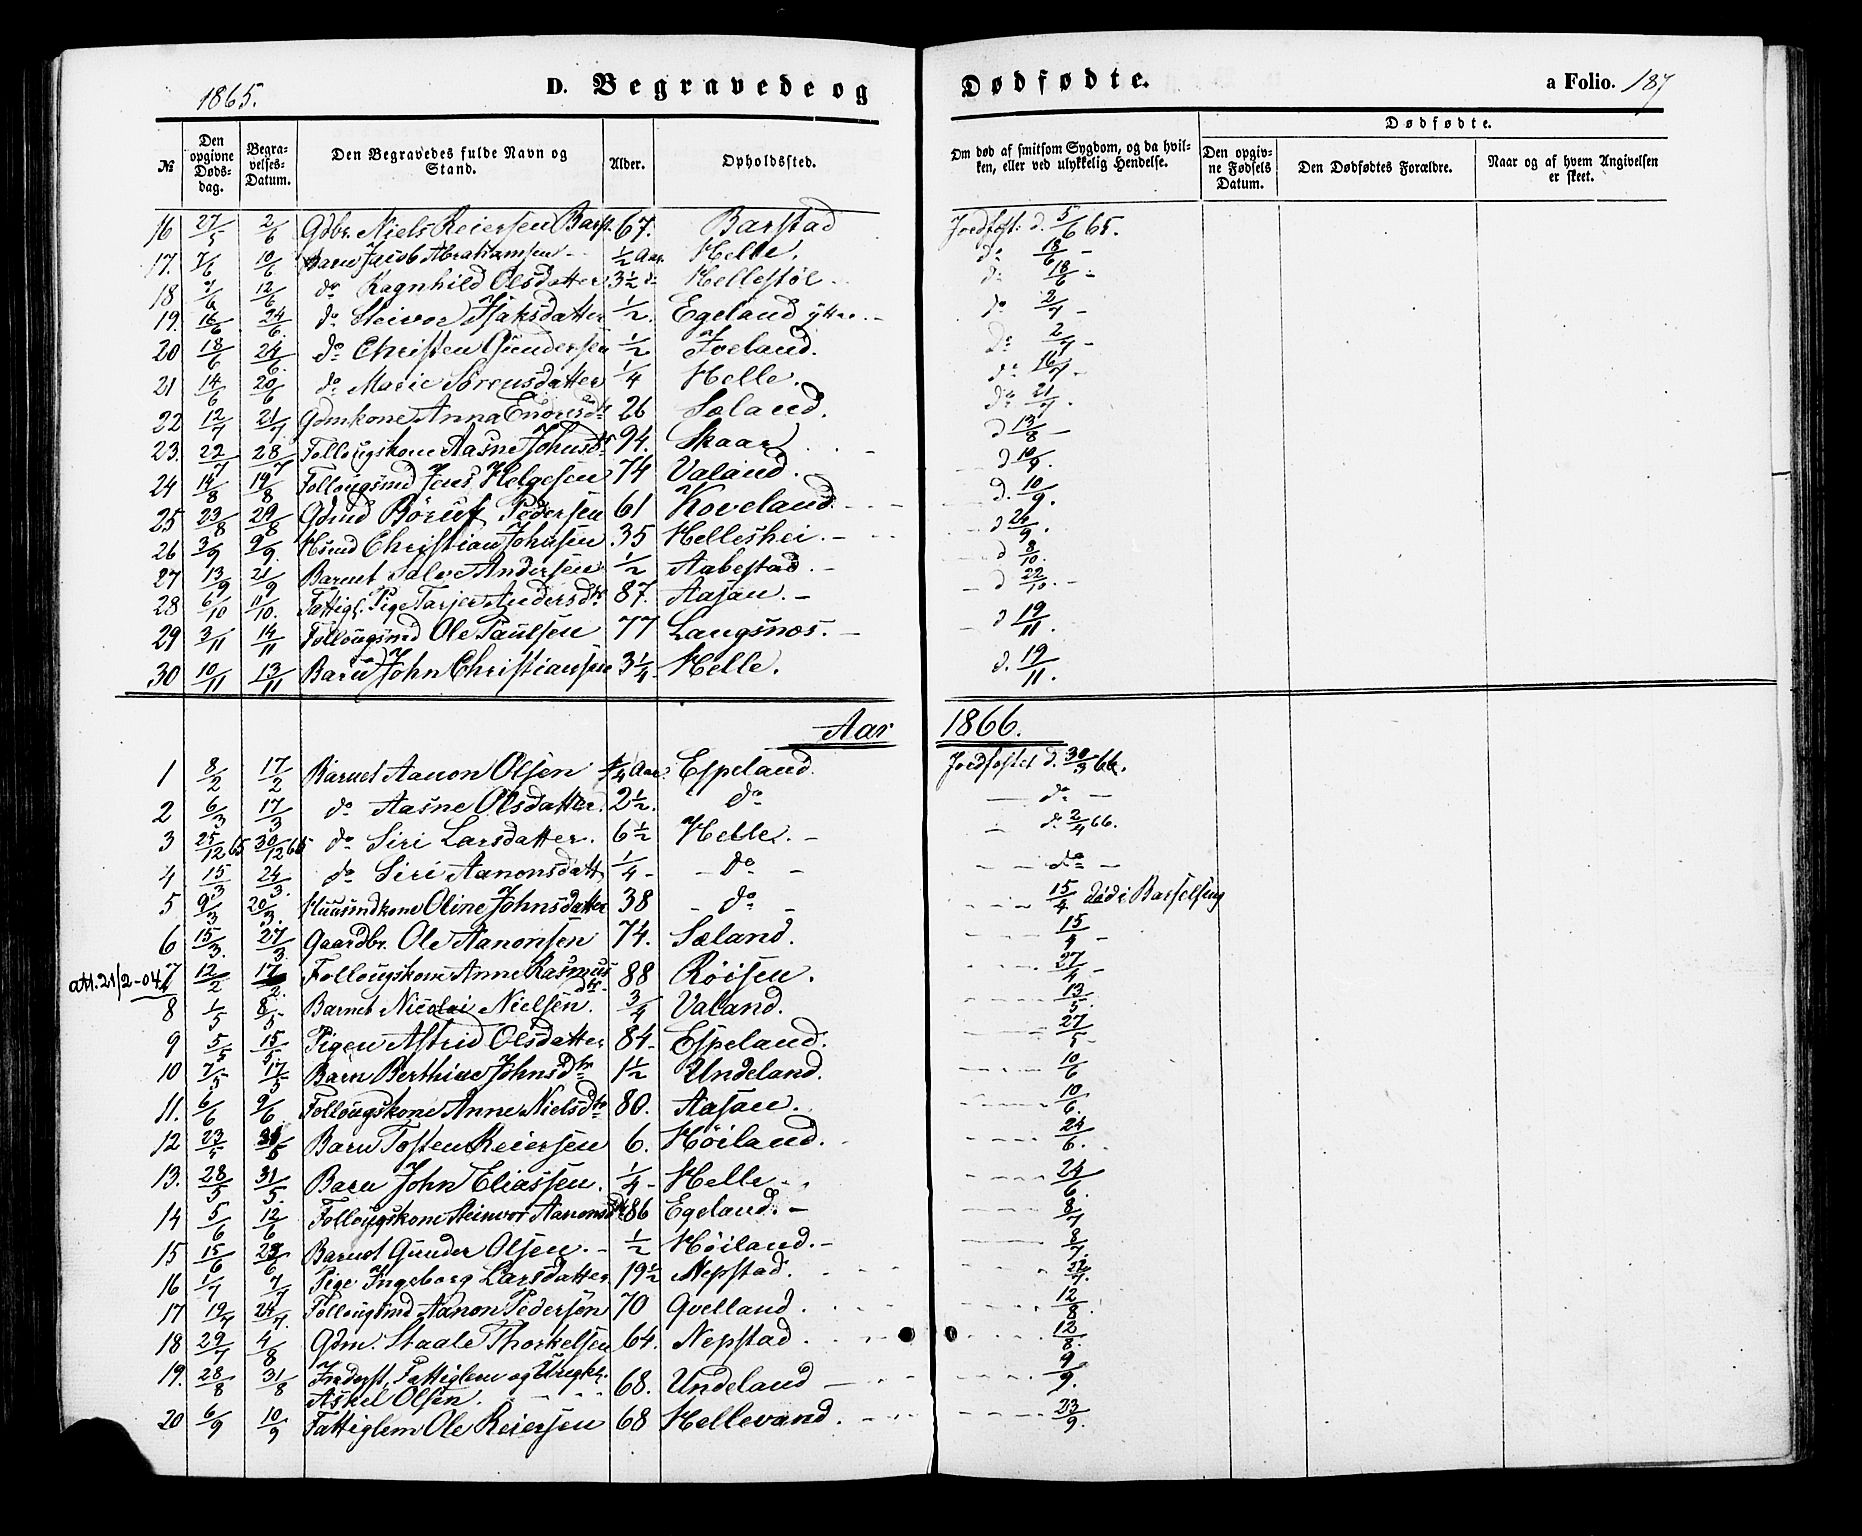 1865.
D. Begravede og Dødfødte.
a Folio. 187
Dødfødte.
№ | Den opgivne Døds-dag. | Begra-velses-Datum. | Den Begravedes fulde Navn og Stand. | Alder. | Opholdssted. | Om død af smitsom Sygdom, og da hvil-ken, eller ved ulykkelig Hendelse. | Den opgiv-ne Fødsels Datum. | Den Dødfødtes Forældre. | Naar og af hvem Angivelsen er skeet.
16 27/5 2/6 Gdbr. Niels Reiersen Barst. 67. Barstad Jordfest. d. 5/6 65.
17. 7/6 10/6 Barn Jacob Abrahamsen - ½ Aar Helle. do 18/6 -
18 7/6 12/6 do Ragnhild Olsdatter 3½ d. Hellestøl do 18/6 -
19. 16/6 24/6 do Steivor Isaksdatter ½. Egeland ytre do 2/7 -
20 18/6 24/6. do Christen Gundersen ½ Foeland. do 2/7 -
21 14/6 20/6 do Marie Sørensdatter ¼ Helle. do 16/7 -
22 12/7 21/7 Gdmkone Anna Enonsdt 26 Sæland. do 21/7.
23. 22/7 28/7 Follougskone Aasne Johnsdt 94. Skaar d 13/8 -
24 14/8 19/8 Follougsmd Jens Helgesen 74 Valand. d 10/9.
25 23/8 29/8 Gdmd Børuf Pedersen 61 Koveland. d. 10/9.
26 3/9 9/9. Husmd Christian Johnsen. 35 Helleshei. d 26/9.
27 13/9 21/9 Barnet Salve Andersen ½ Aabestad. d 8/10.
28 6/10 11/10. Fattigl. Pige Tarjer Andersdtr 87. Aasan. d 22/10. -
29 3/11 14/11 Follougsmd Ole Paulsen 77 Langsnos. d 19/11.
30 10/11 13/11 Barn John Christiansen 3¼ Helle. d. 19/11.
Aar 1866.
1 8/2 17/2 Barnet Aanon Olsen ¼ Aar Espeland. Jordfestet d. 30/3 66.
2 6/3 17/3 do Aasne Olsdatter. 2½. do do -
3 25/12 65 30/12 65 do Siri Larsdatter. 6½ Helle. d. 2/4 66.
4 15/3 24/3. do Siri Aanonsdatt ¼ - do - do -
5 9/3 20/3. Huusmdkone Oline Johnsdatter 38 - do - 15/4. død i Barselseng
6 15/3. 27/3 Gaardbr. Ole Aanonsen 74. Sæland. 15/4 -
att. 21/2-04. 7 12/2 17/2. Follougskone Anne Rasmusdtr 88 Røisen. 27/4 -
8 1/5 8/5 Barnet Nicolai Nielsen. ¾ Valand. 13/5.
9 5/5 15/5. Pigen Astrid Olsdatter 84. Espeland. 27/5 -
10 7/5 17/5 Barn Berthine Johnsdtr 1½ Undeland. 10/6
11. 6/6 9/6 Follougskone Anne Nielsdtr 80. Aasan. 10/6.
12 23/5 31/5 Barn Tosten Reiersen 6. Høiland. 24/6.
13. 28/5 31/5. Barn John Eliassen. ¼ - Helle. 24/6.
14 5/6 12/6 Follougskone Steinvor Aanonsdtr 86 Egeland. 8/7
15 15/6 22/6 Barnet Gunder Olsen. ½ Høiland. 8/7.
16 1/7 7/7 Pige Ingeborg Larsdatter. 19½ Nepstad. 22/7.
17 19/7 24/7. Follougsmd Aanon Pedersen 70 Qvelland. 12/8.
18 29/7 4/8 Gdm. Staale Thorkelsen 64. Nepstad. 12/8.
19. 28/8 31/8 Inderst, Fattiglem og Ungkl. Askel Olsen. 68. Undeland 9/9.
20 6/9 10/9 Fattiglem Ole Reiersen 68 Hellevand. 23/9.